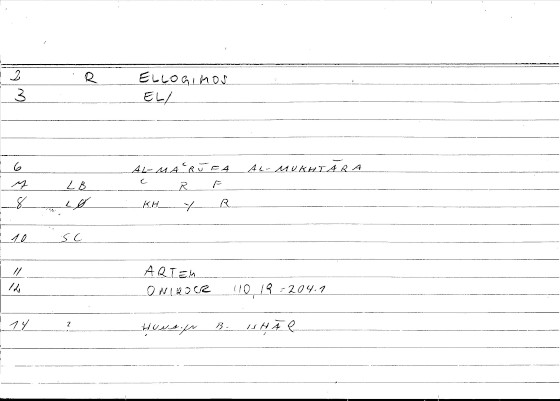 2 R ELLOGIMOS
3 EL/
6 AL-MAʿRŪFA AL-MUKHTĀRA
7 LB ʿ R F
8 LØ KH Y R
10 SC
11 ARTEM
12 ONIROCR 110,19=204.1
14 ? ḤUNAYN B. ISḤĀQ